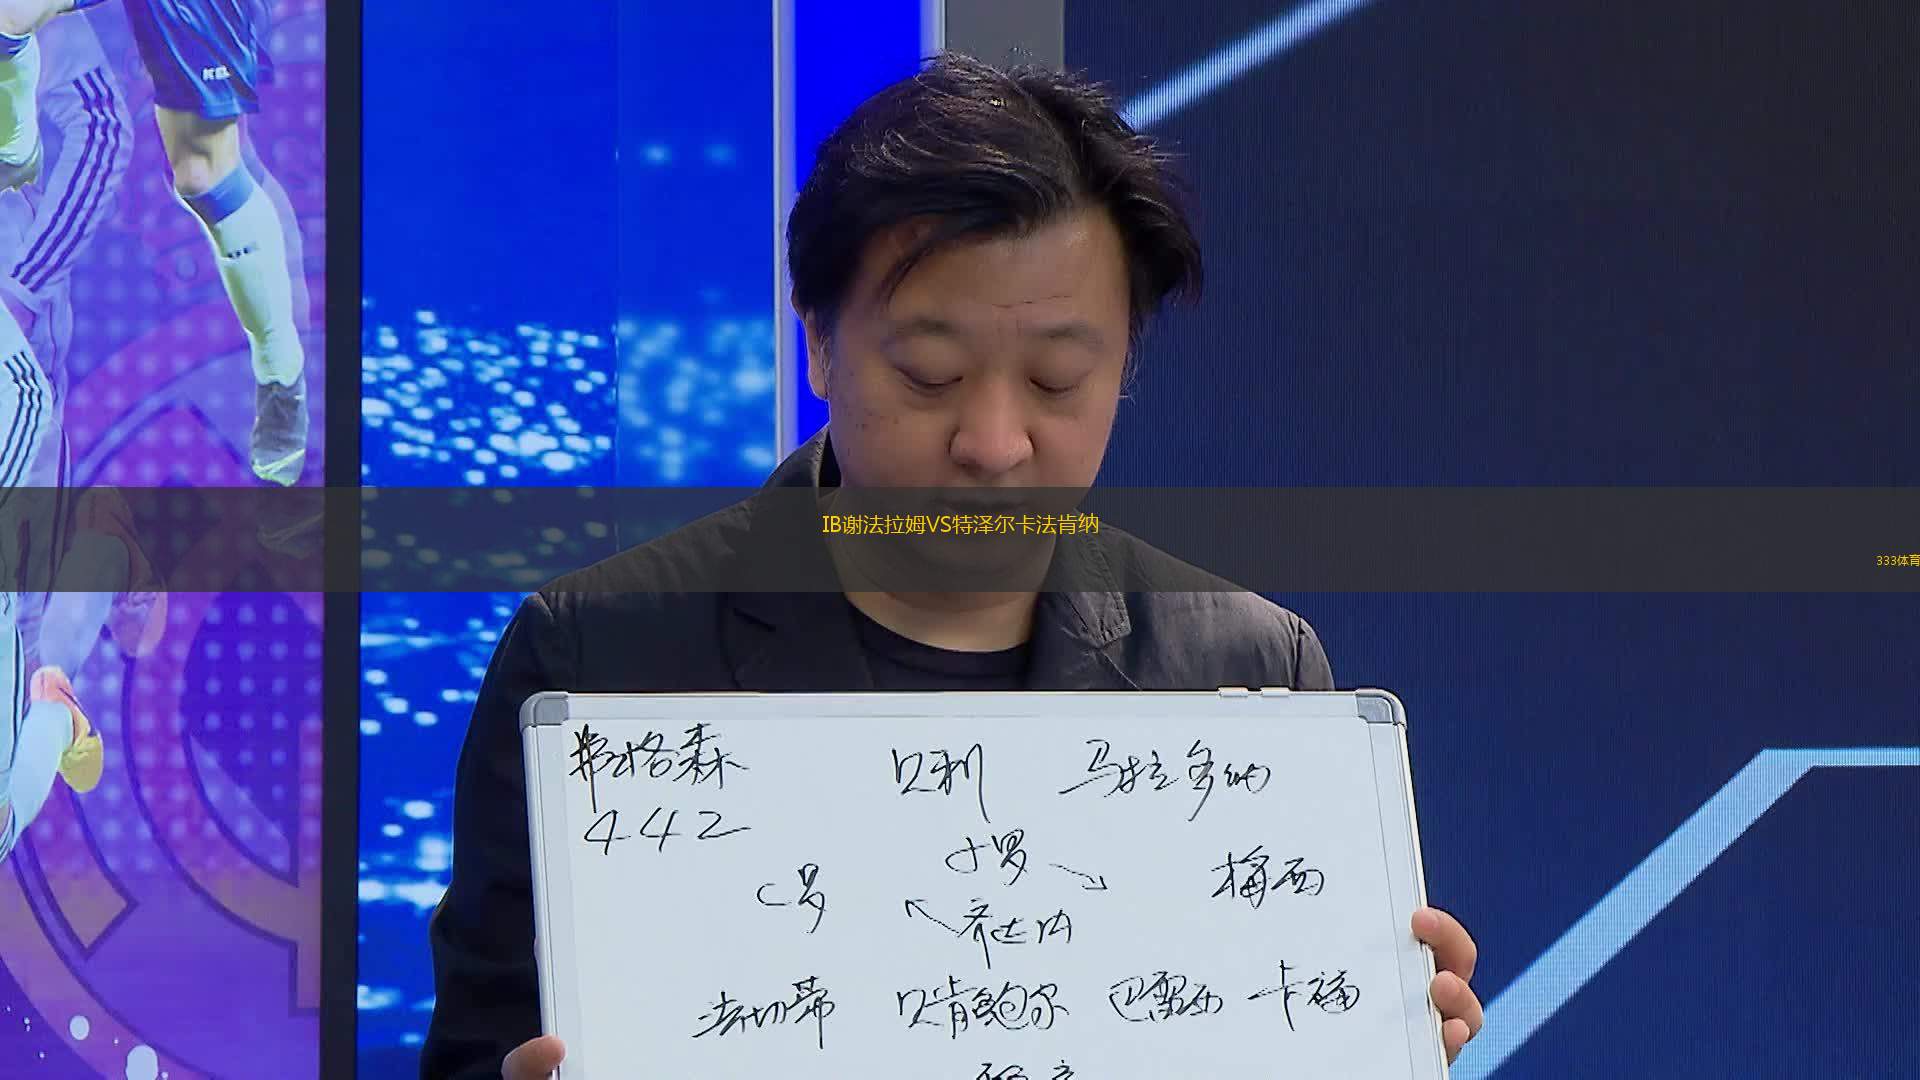 IB谢法拉姆VS特泽尔卡法肯纳
333体育
弗格森 贝利 马拉多纳
442
小罗
C罗 梅西
齐达内
法切蒂 贝肯鲍尔 巴雷西 卡福